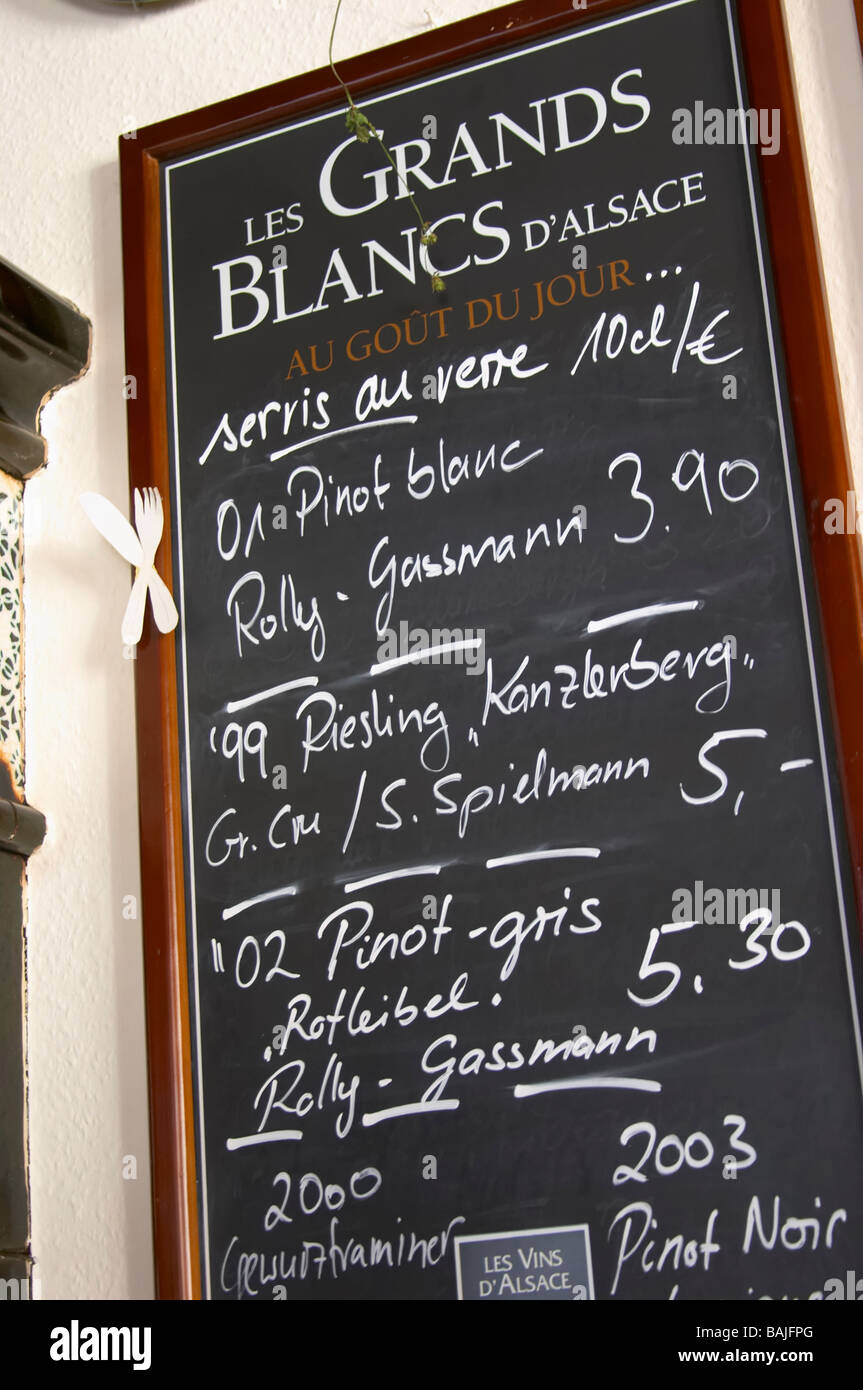 LES GRANDS
BLANCS D'ALSACE
AU GOÛT DU JOUR...
servis au verre 10cl/€
01 Pinot blanc
Rolly - Gassmann 3.90
'99 Riesling „Kanzlerberg„
Gr. Cru / S. Spielmann 5,-
"02 Pinot-gris
„Rotleibel. 5.30
Rolly - Gassmann
2000 2003
Gewurztraminer Pinot Noir
LES VINS
D'ALSACE
alamy
Image ID: BAJFPG
www.alamy.com